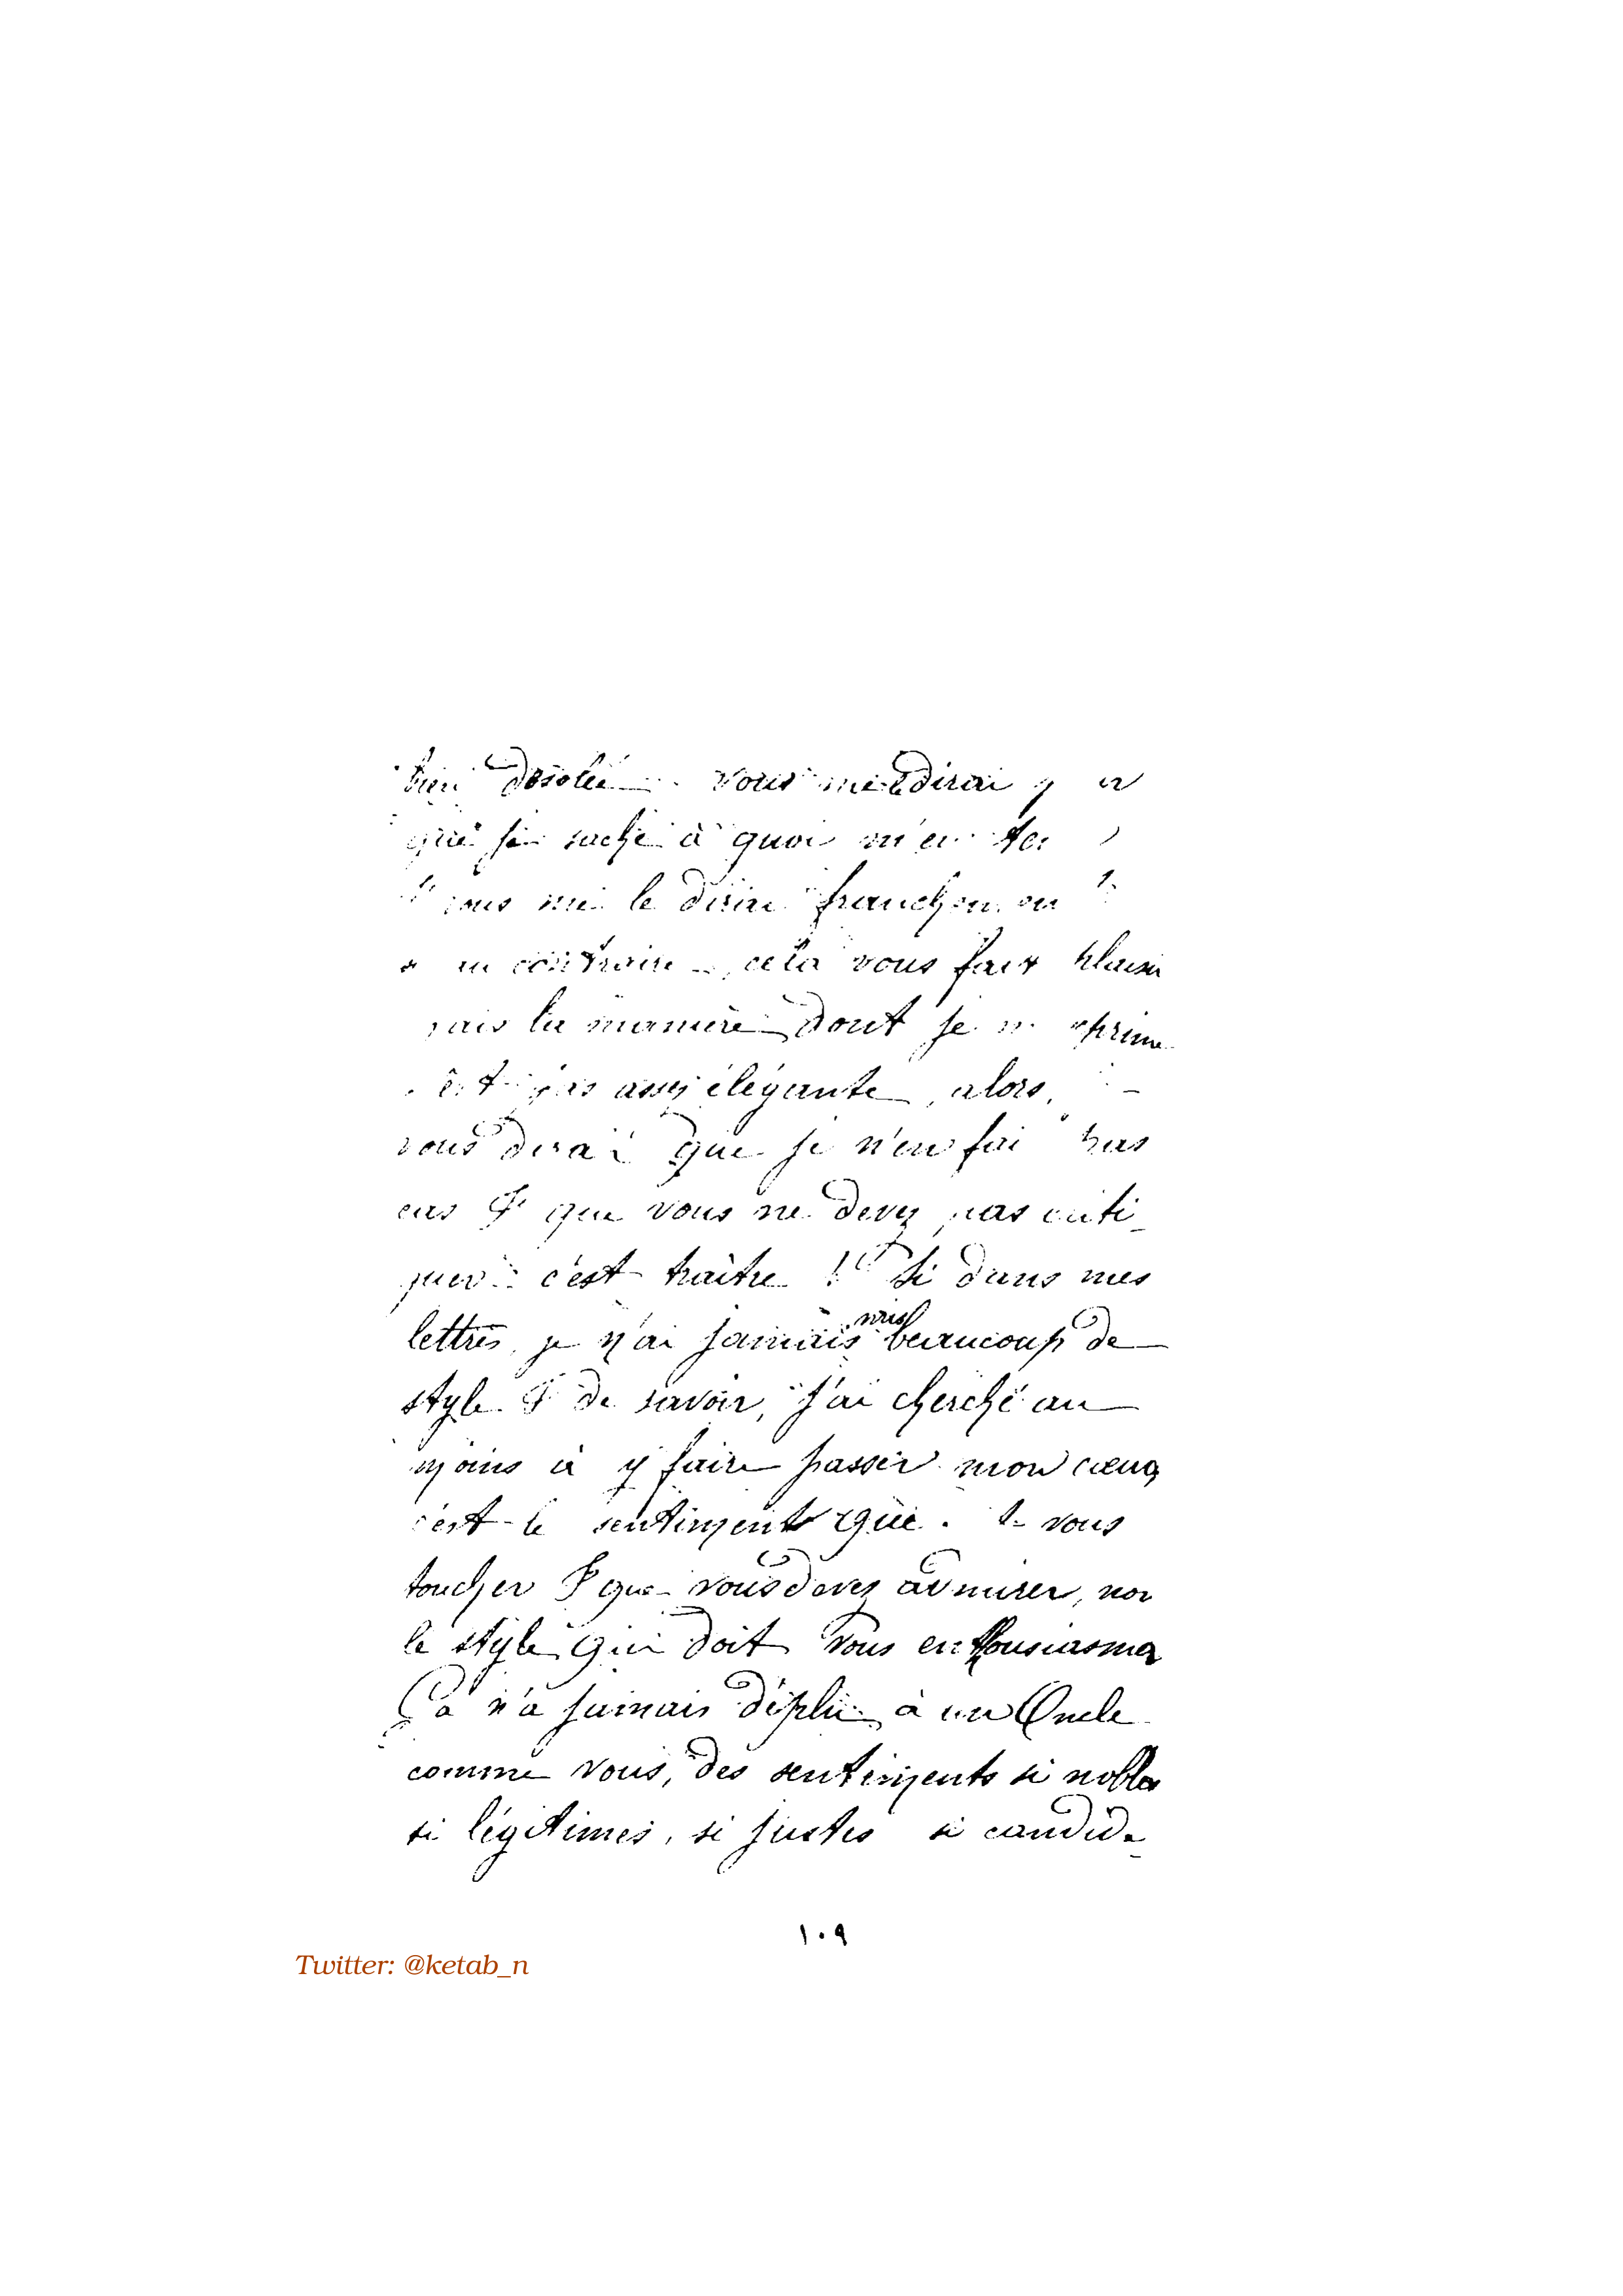 bien désolée. vous me le direz
que je sache à quoi m'en
vous me le direz
contraire cela vous fait plaisir
mais la manière dont je m'exprime
pas assez élégante, alors,
vous dirai que je n'en fai pas
cas & que vous ne devez pas criti
quer c'est traître ! Si dans mes
lettres, je n'ai jamais mis beaucoup de
style & de savoir, j'ai cherché au
moins à y faire passer mon cœur,
c'est le sentiment qui vous
toucher & que vous devez admirer, non
le style qui doit vous enthousiasmer
Ça n'a jamais déplu à un Oncle
comme vous, des sentiments si nobles
si légitimes, si justes si candide
١٠٩
Twitter: @ketab_n